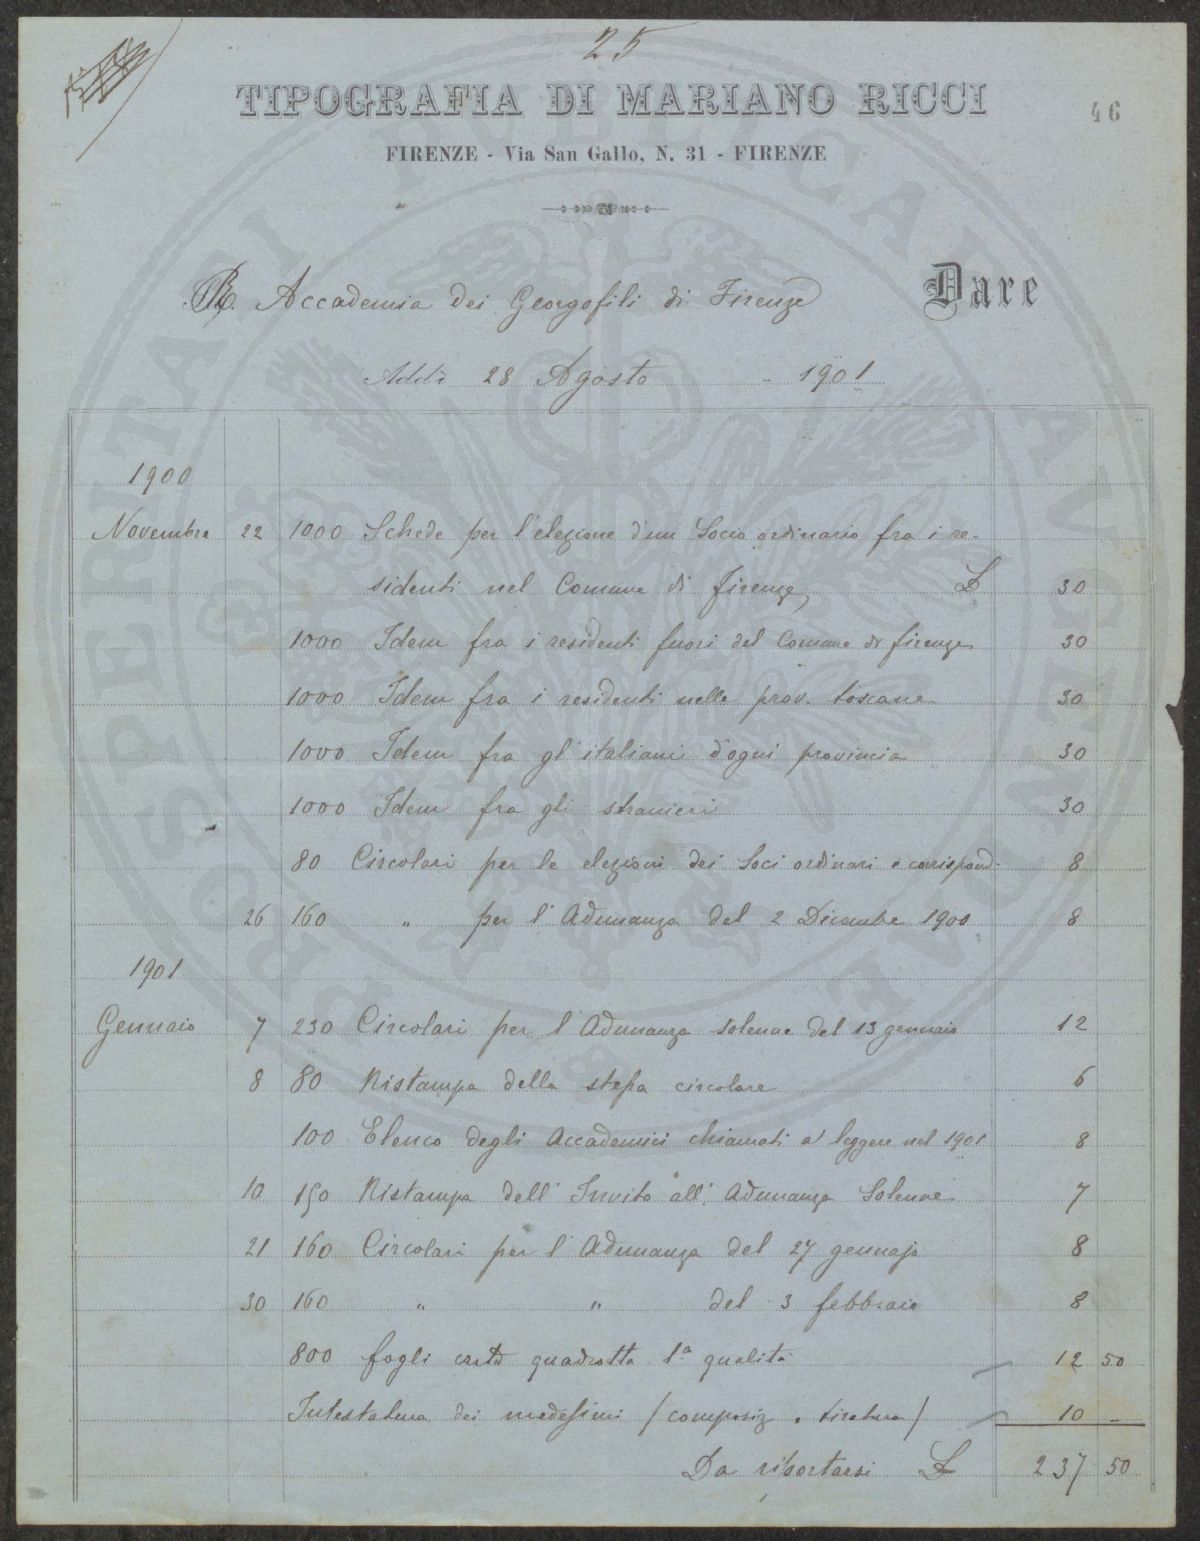 25
TIPOGRAFIA DI MARIANO RICCI
46
FIRENZE - Via San Gallo, N. 31 - FIRENZE
R. Accademia dei Georgofili di Firenze Dare
Addì 28 Agosto 1901
1900
Novembre 22 1000 Schede per l'elezione d'un Socio ordinario fra i re-
sidenti nel Comune di Firenze £ 30
1000 Idem fra i residenti fuori del Comune di Firenze 30
1000 Idem fra i residenti nelle prov. toscane 30
1000 Idem fra gl'italiani d'ogni provincia 30
1000 Idem fra gli stranieri 30
80 Circolari per le elezioni dei Soci ordinari e corrispond. 8
26 160 " per l'Adunanza del 2 Dicembre 1900 8
1901
Gennaio 7 230 Circolari per l'Adunanza solenne del 13 gennaio 12
8 80 Ristampa della stessa circolare 6
100 Elenco degli Accademici chiamati a leggere nel 1901 8
10 150 Ristampa dell'Invito all'Adunanza Solenne 7
21 160 Circolari per l'Adunanza del 27 gennajo 8
30 160 " " del 3 febbraio 8
800 fogli carta quadrotta 1a qualità 12 50
Intestatura dei medesimi (composiz. e tiratura) 10 -
Da riportarsi £ 237 50
PROSPERITATI PVBLICAE AVGENDAE